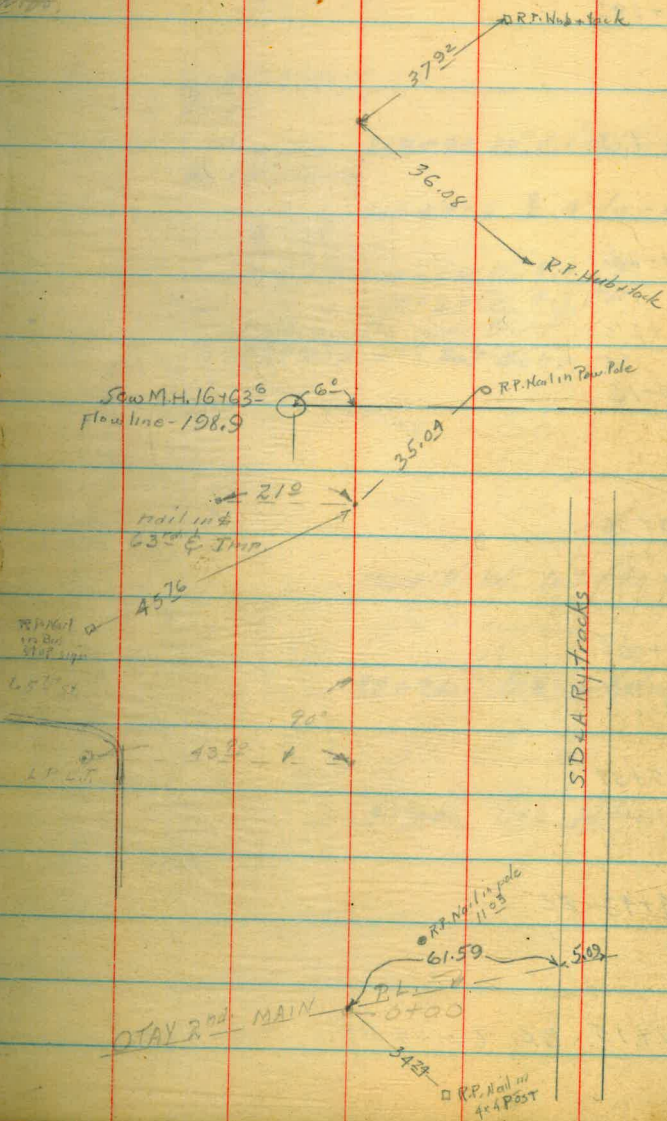 R.P. Hub + tack
37 92
36.08
R.P. Hub + tack
Sew M.H. 16+63 6
6 0
Flow line - 198.9
R.P. Nail in Pow. Pole
35.04
21 0
Nail in
63 rd & Imp
45 76
R.P. Nail
in Bus
Stop sign
65 th St.
90°
43 90
L.P. L.T.
S.D & A. Ry tracks
R.P. Nail in pole
11 03
61.59
5.09
P.L.
OTAY 2nd MAIN
0+00
34 24
R.P. Nail in
4x4 POST